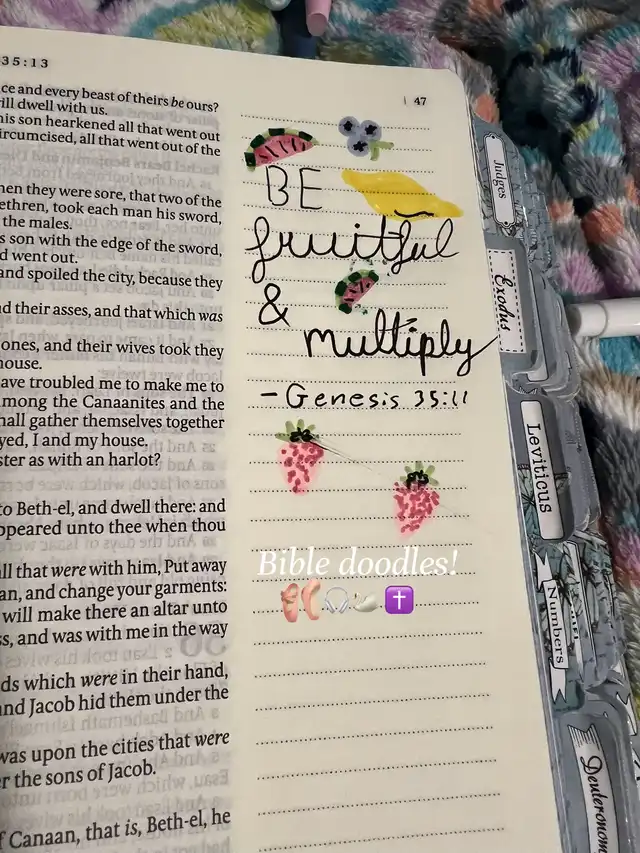 35:13
47
ce and every beast of theirs be ours?
ill dwell with us.
his son hearkened all that went out
ircumcised, all that went out of the
hen they were sore, that two of the
ethren, took each man his sword,
the males.
s son with the edge of the sword,
d went out.
and spoiled the city, because they
d their asses, and that which was
ones, and their wives took they
house.
ave troubled me to make me to
mong the Canaanites and the
hall gather themselves together
yed, I and my house.
ster as with an harlot?
to Beth-el, and dwell there: and
ppeared unto thee when thou
all that were with him, Put away
an, and change your garments:
will make there an altar unto
ss, and was with me in the way
ds which were in their hand,
and Jacob hid them under the
was upon the cities that were
r the sons of Jacob.
f Canaan, that is, Beth-el, he
BE
fruitful
&
multiply
- Genesis 35:11
Bible doodles!
Judges
Exodus
Leviticus
Numbers
Deuteronom